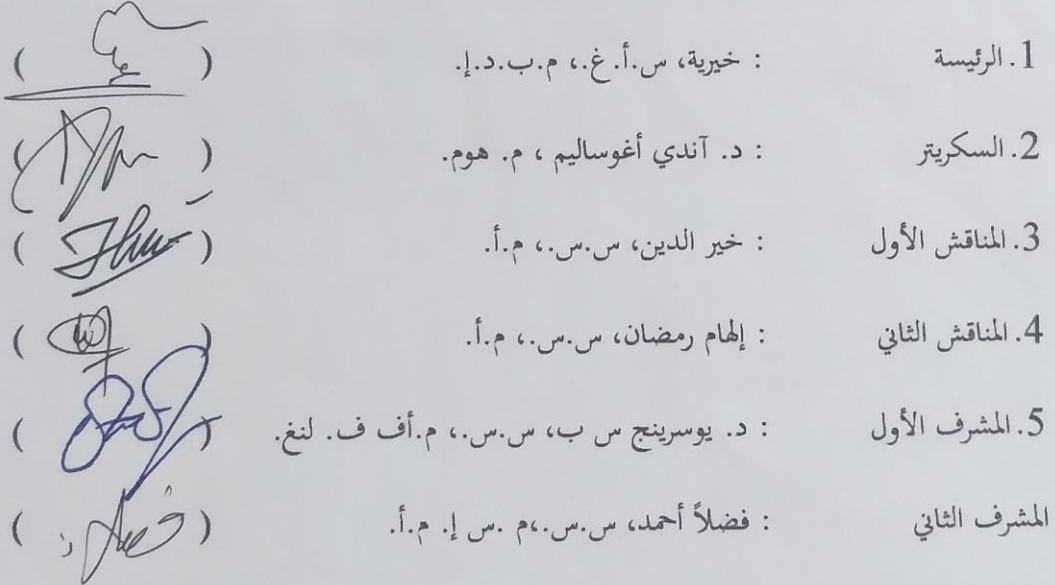 1. الرئيسة : خيرية، س.أ.غ.، م.ب.د.إ. ( )
2. السكريتر : د. آندي أغوساليم ، م. هوم. ( )
3. المناقش الأول : خير الدين، س.س.، م.أ. ( )
4. المناقش الثاني : إلهام رمضان، س.س.، م.أ. ( )
5. المشرف الأول : د. يوسرينج س ب، س.س.، م.أف ف. لنغ. ( )
المشرف الثاني : فضلاً أحمد، س.س.،م .س إ. م.أ. ( )